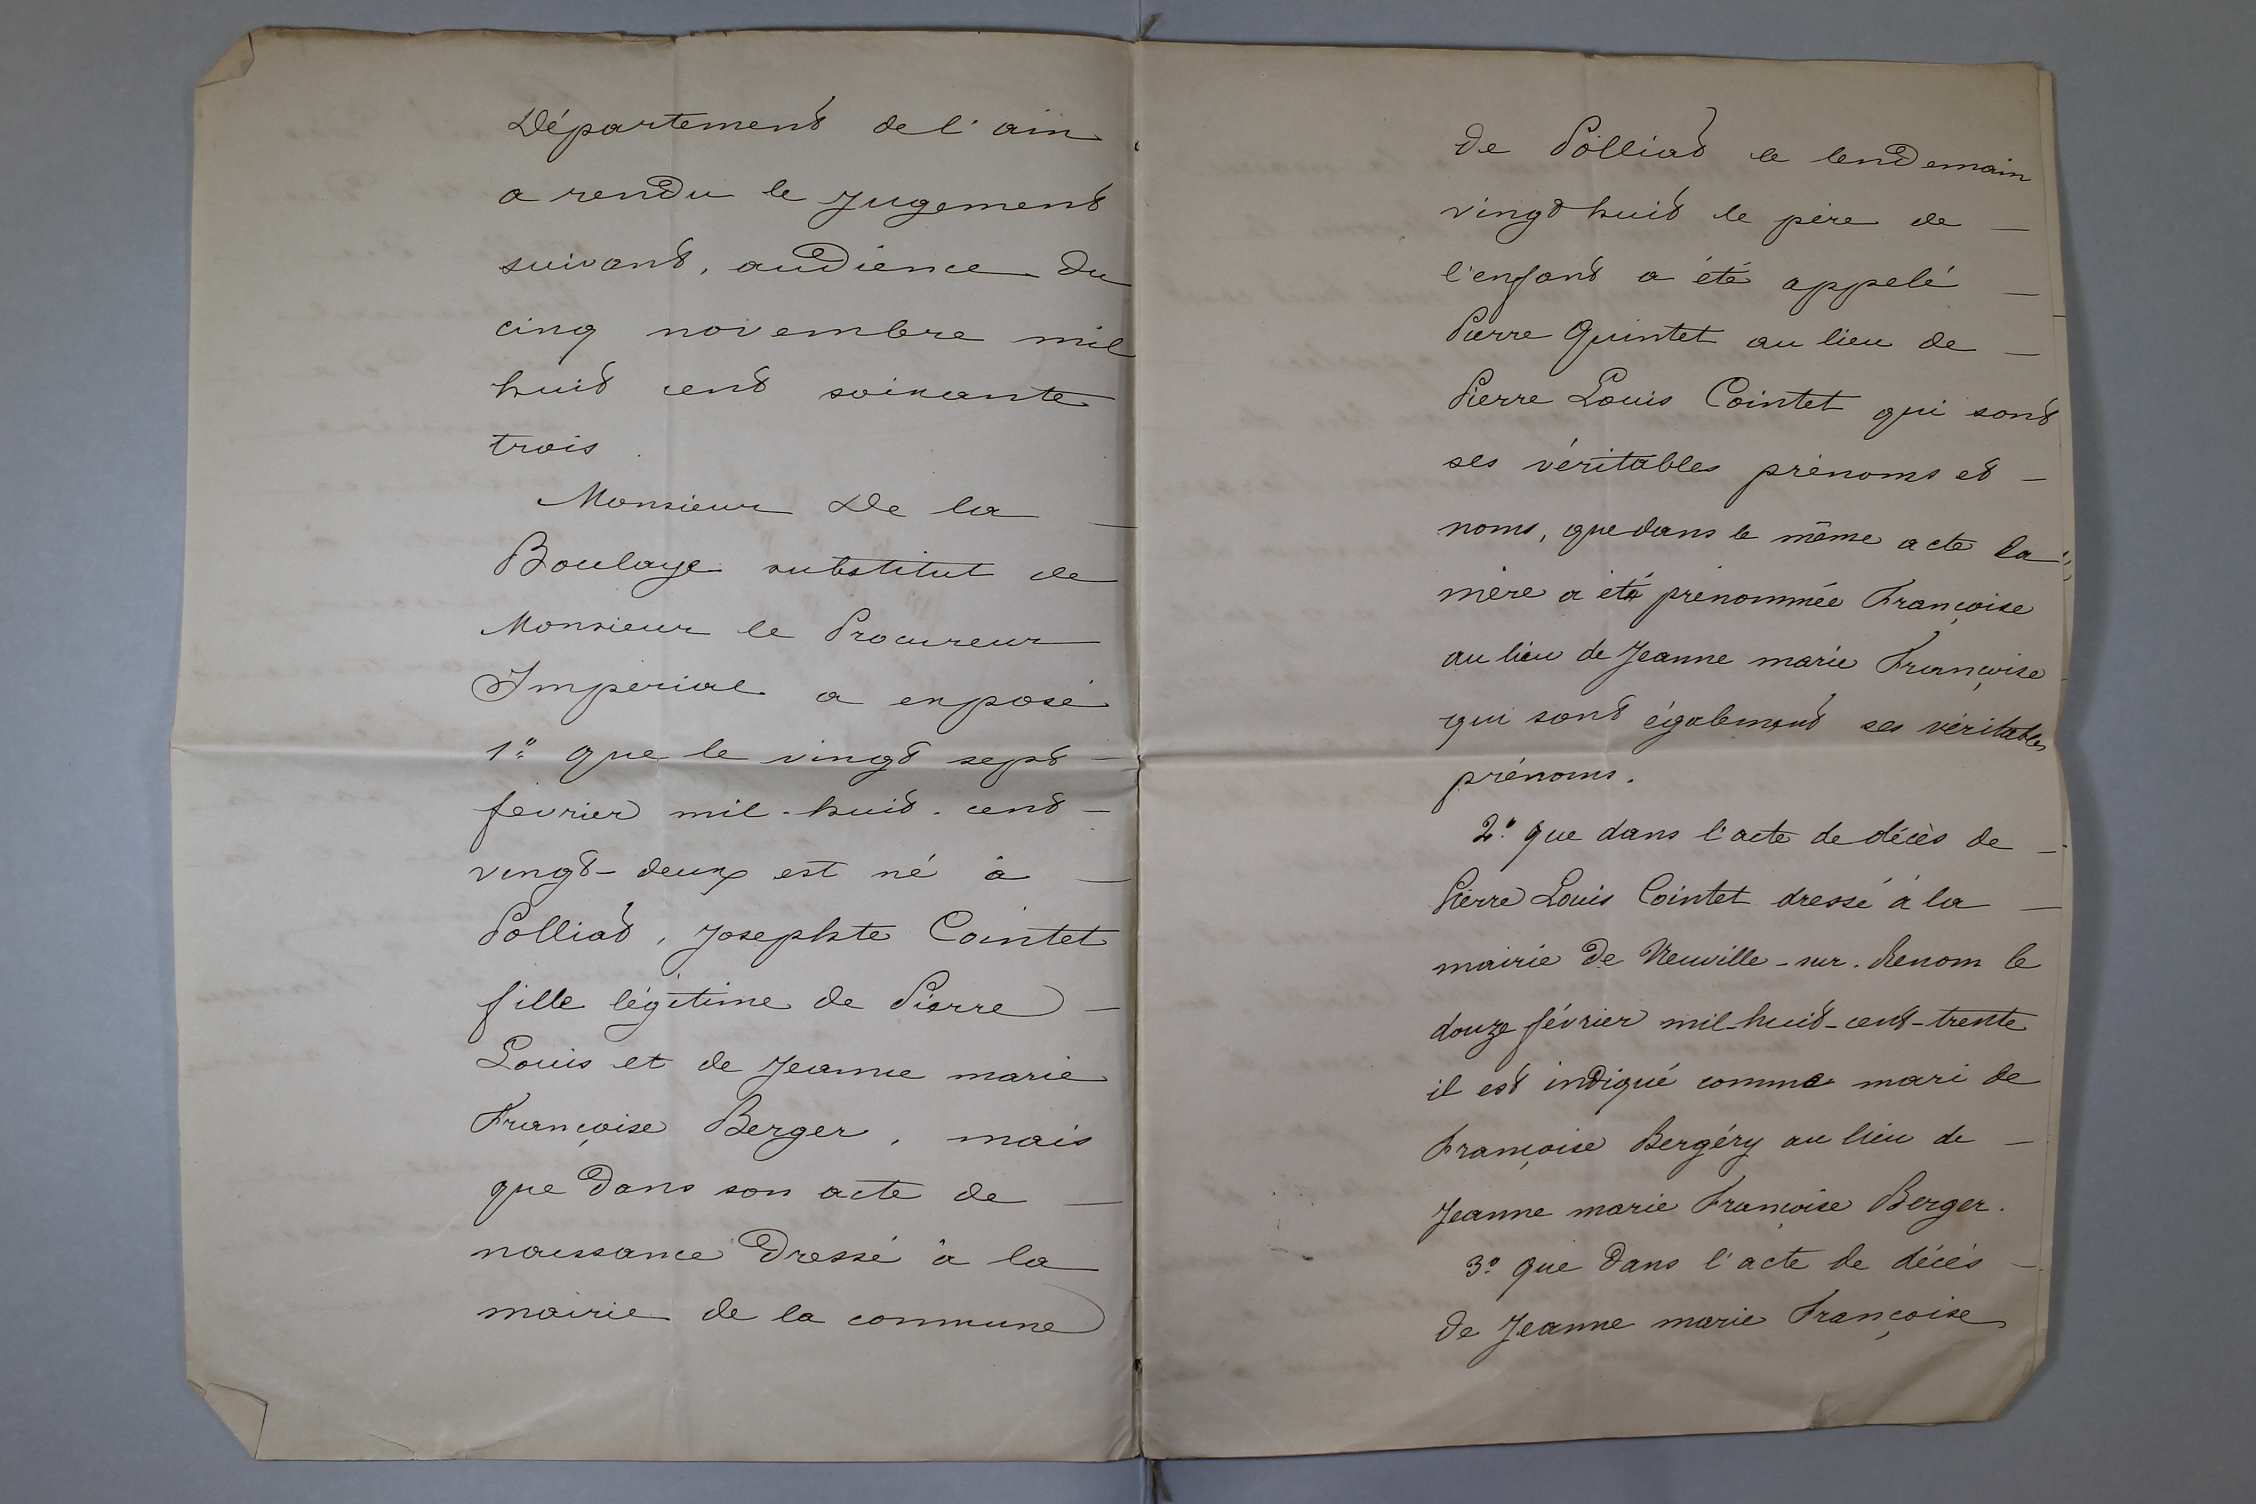 Département de l'ain
a rendu le Jugement
suivant, audience du
cinq novembre mil
huit cent soixante
trois
Monsieur De la —
Boulaye substitut de
Monsieur le Procureur
Imperial a exposé
1° que le vingt sept —
fevrier mil-huit-cent —
vingt-deux est né à —
Polliat, Josephte Cointet
fille légitime de Pierre —
Louis et de Jeanne marie
Françoise Berger, mais
que dans son acte de —
naissance dressé à la
mairie de la commune
de Polliat le lendemain
vingt huit le père de —
l'enfant a été appelé —
Pierre Quintet au lieu de —
Pierre Louis Cointet qui sont
ses véritables prénoms et —
noms, que dans le même acte la
mère a été prénommée Françoise
au lieu de Jeanne marie Françoise
qui sont également ses véritables
prénoms.
2° que dans l'acte de décès de —
Pierre Louis Cointet dressé à la —
mairie de Neuville-sur-Renom le
douze février mil-huit-cent-trente
il est indiqué comme mari de
Françoise Bergéry au lieu de —
Jeanne marie Françoise Berger.
3° que dans l'acte de décès —
de Jeanne marie Françoise